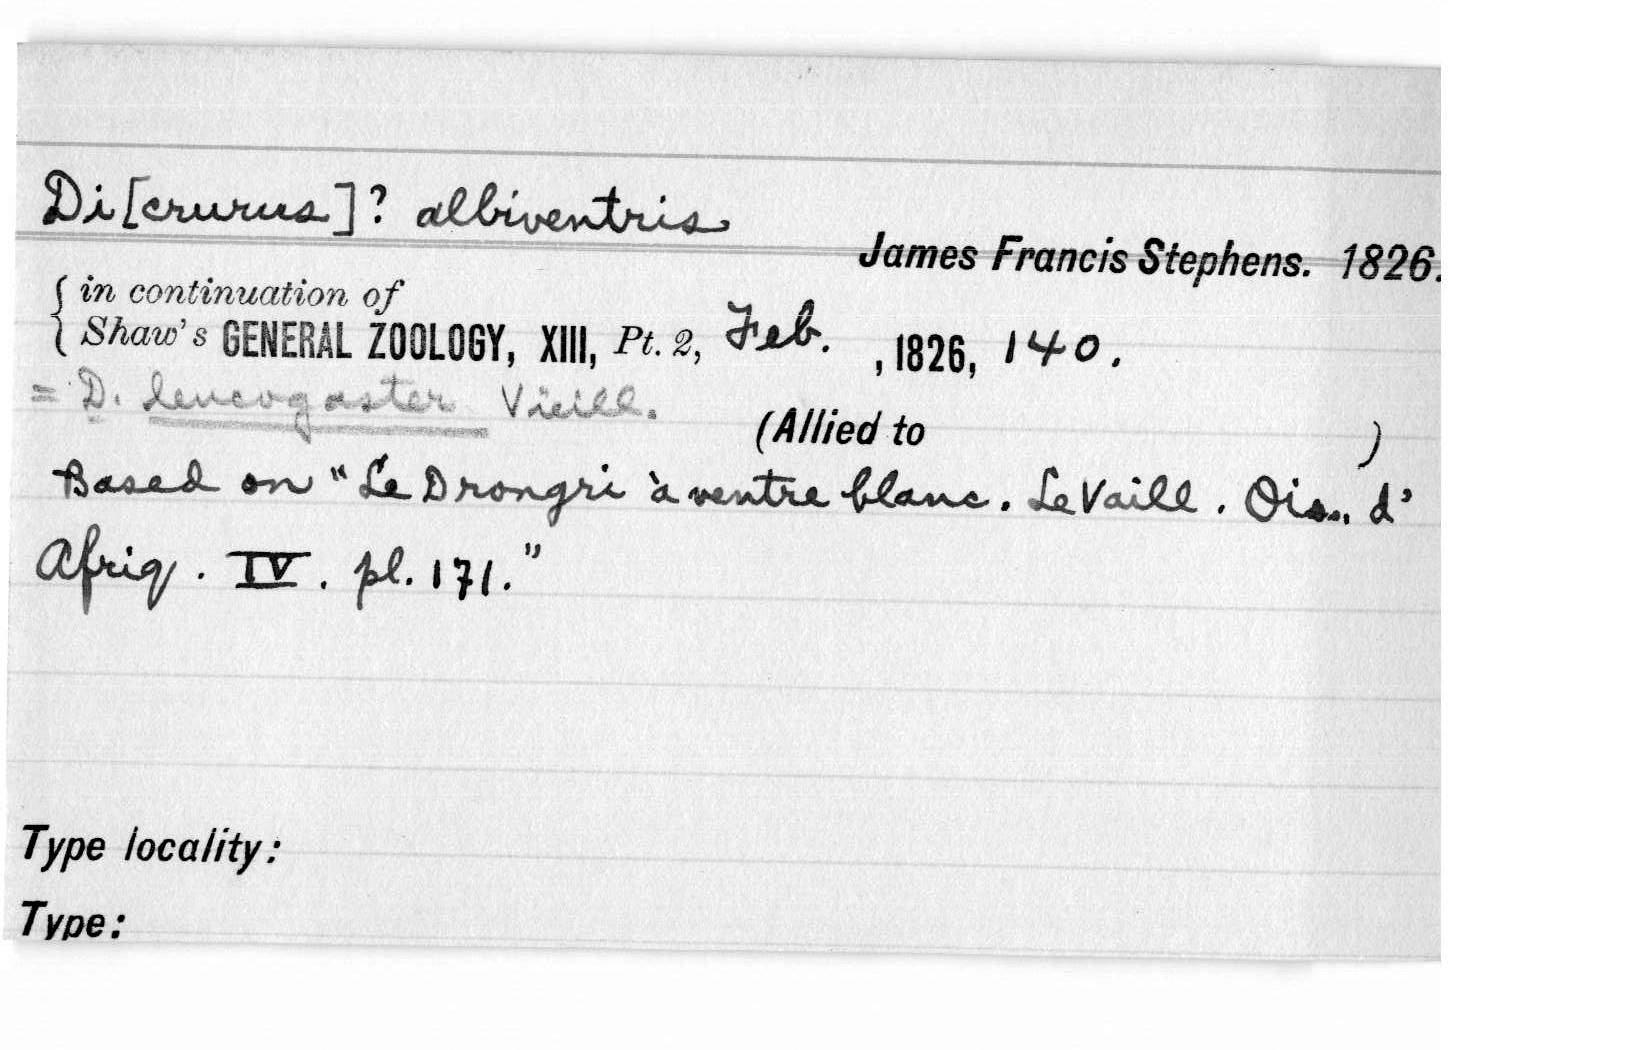 Di[crurus]? albiventris
James Francis Stephens. 1826.
{ in continuation of
Shaw's GENERAL ZOOLOGY, XIII, Pt. 2, Feb. , 1826, 140.
= D. leucogaster Vieill.
(Allied to )
Based on "Le Drongri à ventre blanc. Le Vaill. Ois., d'
Afriq. IV. pl. 171."
Type locality:
Type: